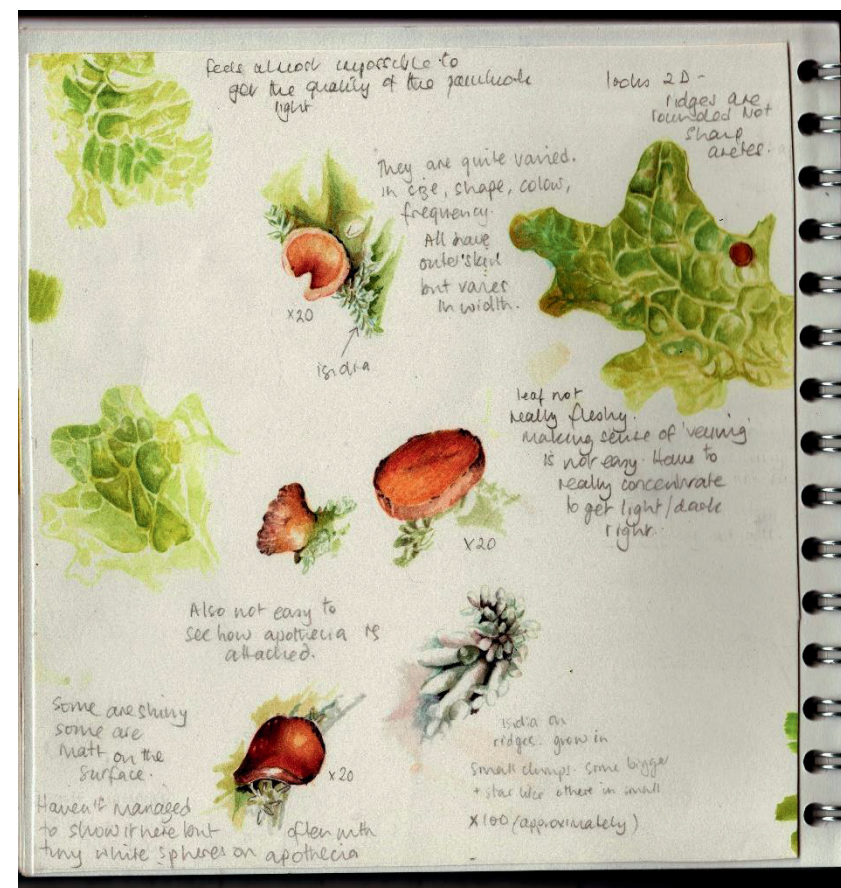 feels almost impossible to
get the quality of the
light
looks 2D -
ridges are
rounded Not
sharp
aretes.
They are quite varied.
in size, shape, colour,
frequency.
All have
outer 'skin'
but varies
in width.
x20
isidia
leaf not
really fleshy.
making sense of 'veining'
is not easy. Have to
really concentrate
to get light/dark
right.
x20
Also not easy to
see how apothecia is
attached.
Some are shiny
some are
matt on the
surface.
x20
Haven't managed
to show it here but often with
tiny white spheres on apothecia
Isidia on
ridges. grow in
small clumps. some bigger
+ star like others in small
x100 (approximately)